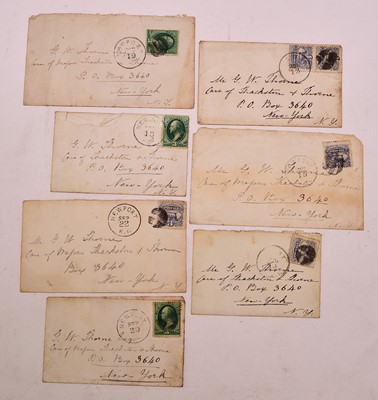 G. W. Thorne
Care of Messrs Thackston & Thorne
P. O. Box 3640
New-York
N. Y.
NEWPORT
19
G. W. Thorne
Care of Thackston & Thorne
P. O. Box 3640
New-York
N. Y.
13
Mr G. W. Thorne
Care of Messrs Thackston & Thorne
Box 3640
New-York
N. Y.
NEWPORT
SEP
22
R.I.
G. W. Thorne
Care of Messrs Thackston & Thorne
P.O. Box 3640
New-York
NEWPORT
SEP
20
Mr G. W. Thorne
Care of Thackston & Thorne
P.O. Box 3640
New-York
N. Y.
Mr G. W. Thorne
Care of Messrs Thackston & Thorne
P.O. Box 3640
New-York
Mr G. W. Thorne
Care of Thackston & Thorne
P.O. Box 3640
New-York
N. Y.